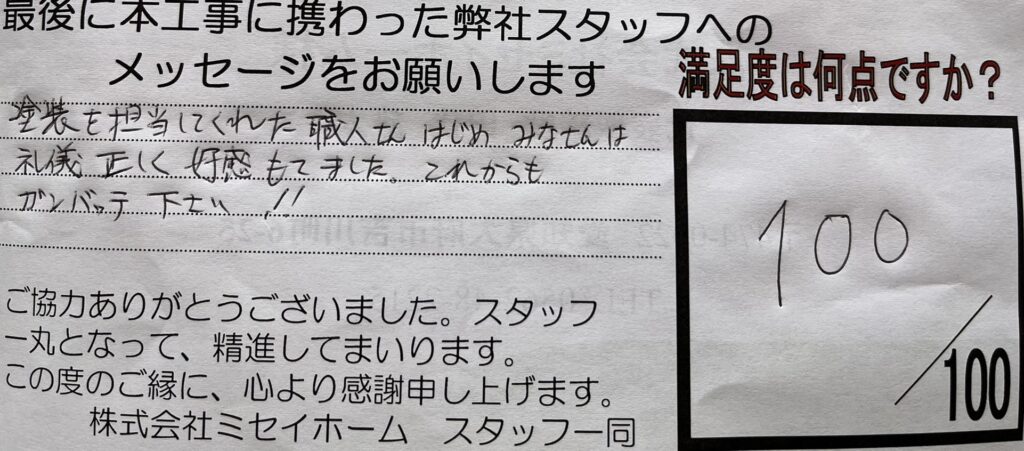 最後に本工事に携わった弊社スタッフへの
メッセージをお願いします
塗装を担当してくれた職人さんはじめみなさんは
礼儀正しく好感もてました。これからも
ガンバッテ下さい!!
ご協力ありがとうございました。スタッフ
一丸となって、精進してまいります。
この度のご縁に、心より感謝申し上げます。
株式会社ミセイホーム スタッフ一同
満足度は何点ですか?
100
/100